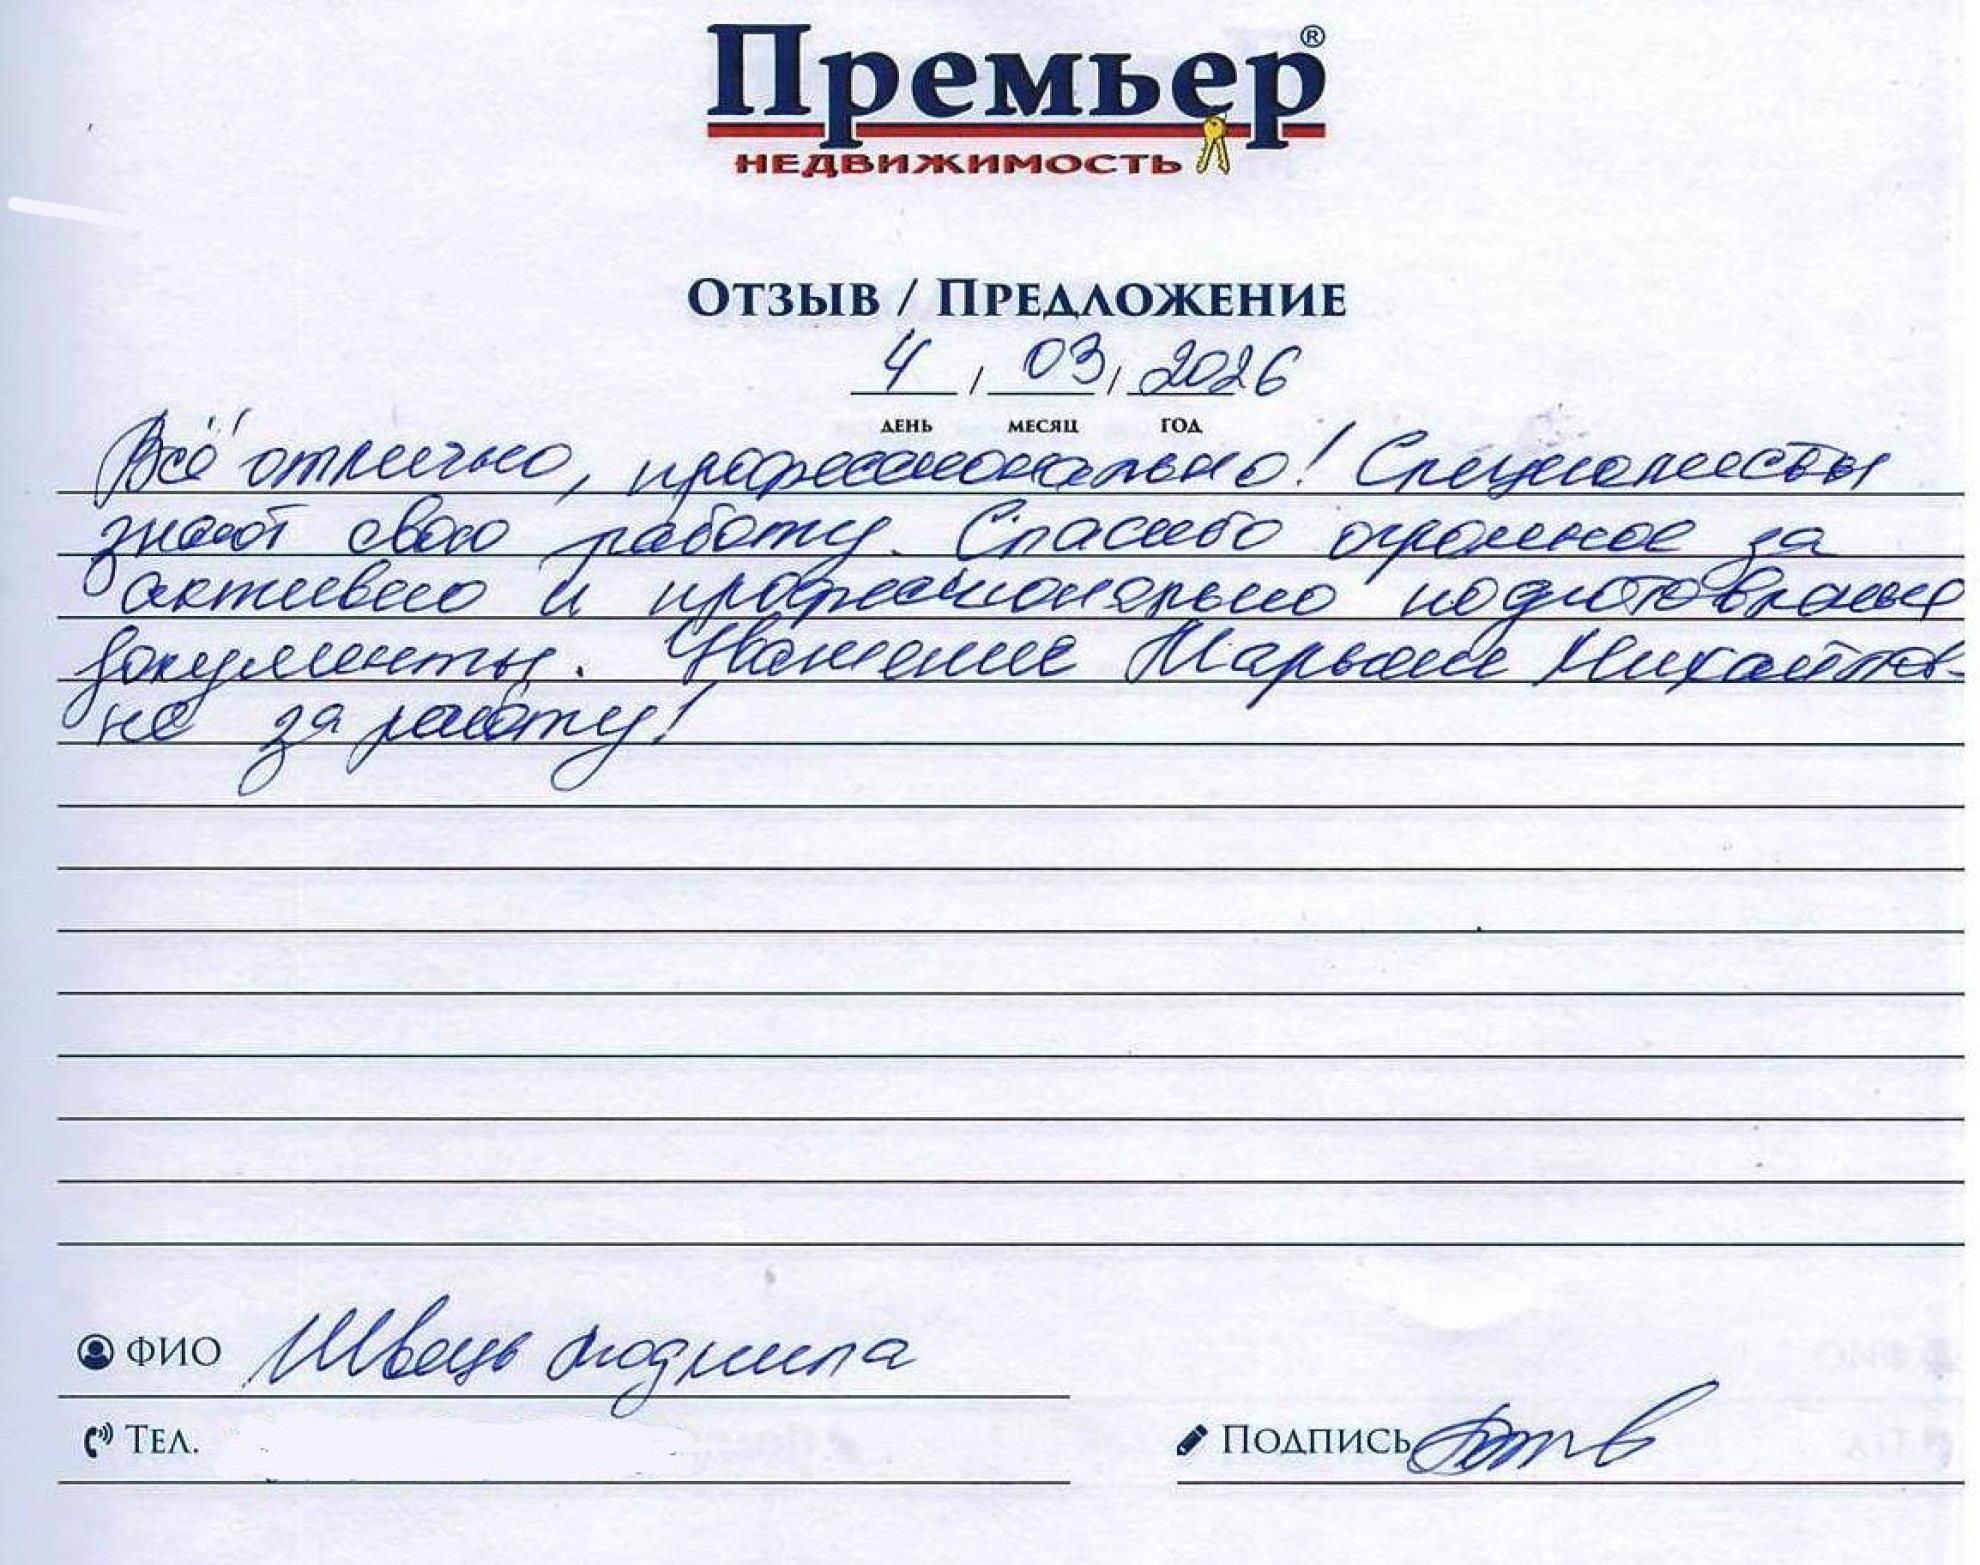 Премьер®
НЕДВИЖИМОСТЬ
Отзыв / Предложение
4 / 03 / 2026
день месяц год
Всё отлично, профессионально! Специалисты
знают свою работу. Спасибо огромное за
активно и профессионально подготовленые
документы. Уважение Марьяне Михайлов-
не за работу!
ФИО Швець Людмила
Тел.
Подпись